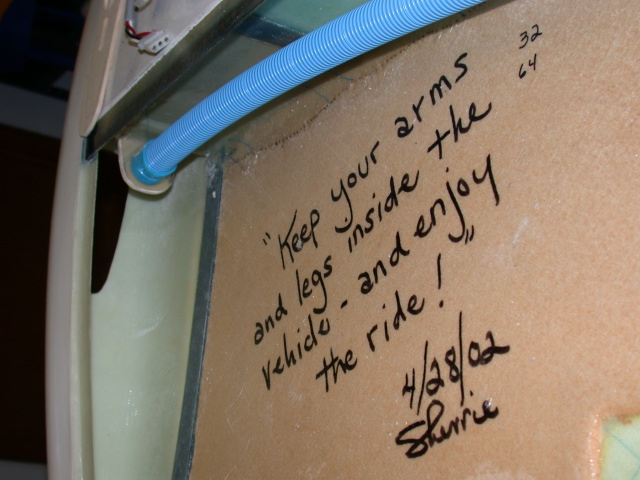 32
64
"Keep your arms
and legs inside the
vehicle - and enjoy
the ride!"
4/28/02
Sherrie